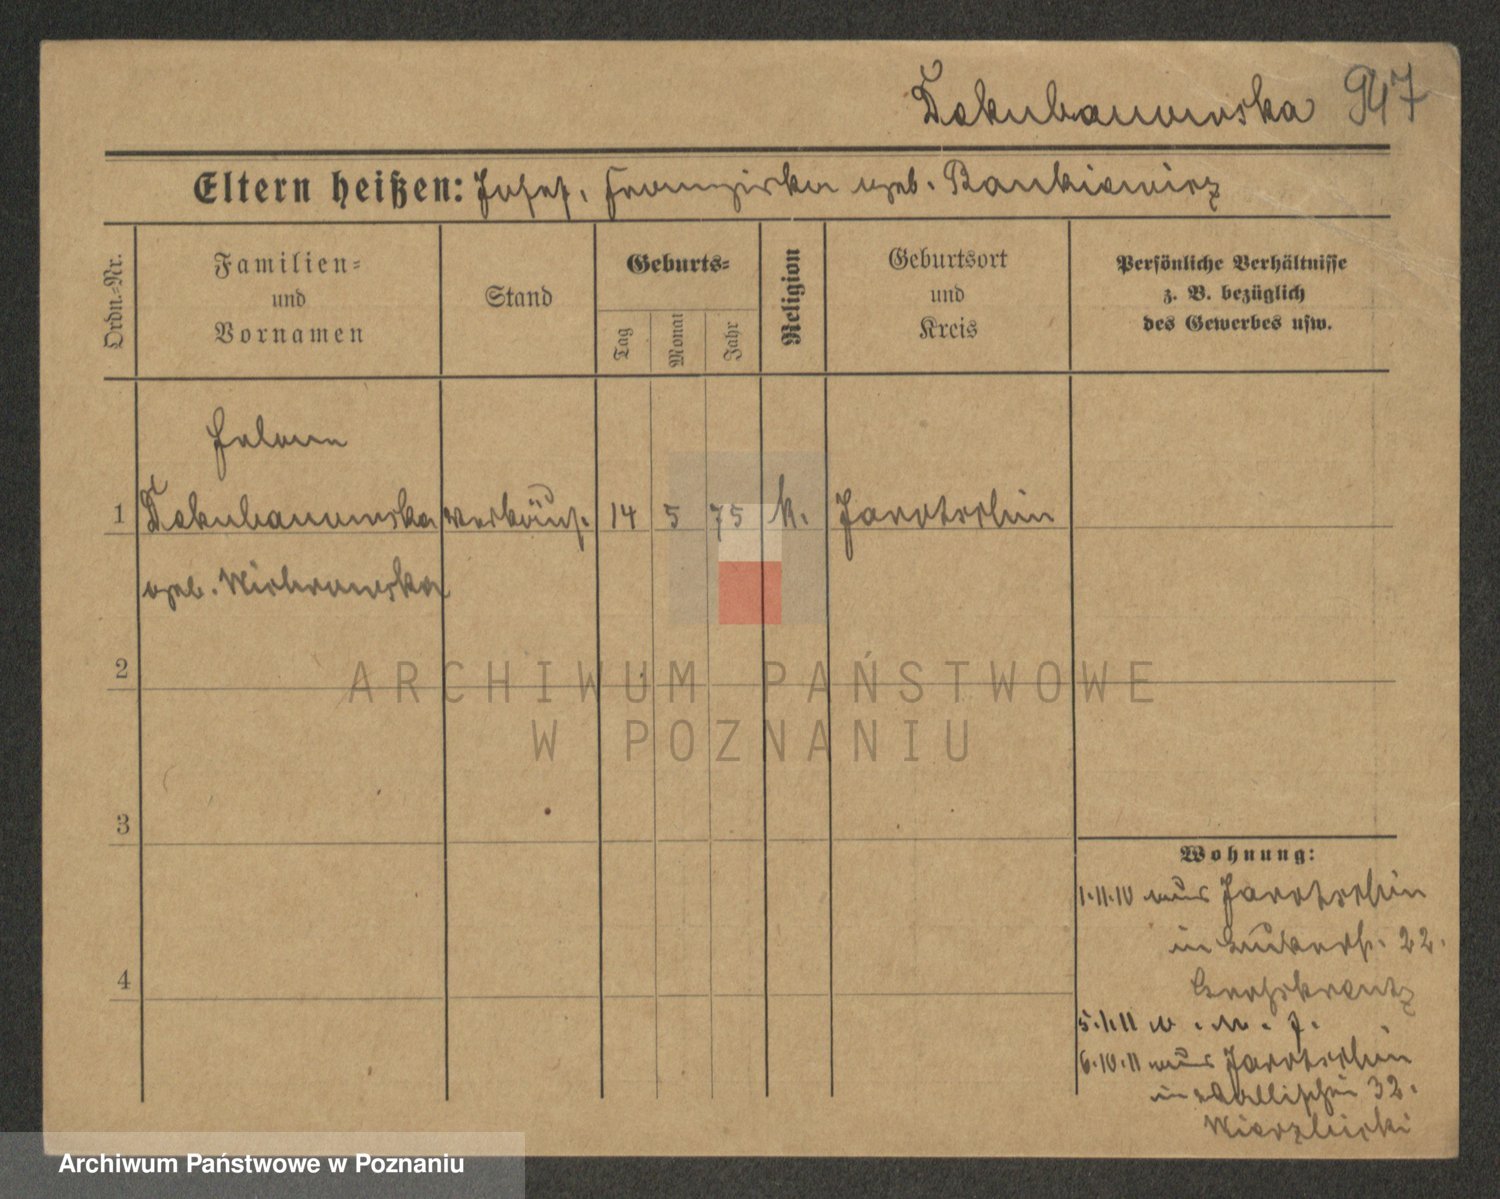 Dekubanowska 947
Eltern heißen: Josef, Franziska geb. Bankiewicz
Ordn.-Nr.
Familien-
und
Vornamen
Stand
Geburts-
Tag
Monat
Jahr
Religion
Geburtsort
und
Kreis
Persönliche Verhältnisse
z. B. bezüglich
des Gewerbes usw.
Helene
1 Dekubanowska Verkäuf. 14 5 75 k. Jarotschin
geb. Wichrowska
2
3
4
Wohnung:
1.11.10 aus Jarotschin
in 22.
5.1.11
6.10.11 aus Jarotschin
in Wallischei 32.
Wierzbicki
ARCHIWUM PAŃSTWOWE
W POZNANIU
Archiwum Państwowe w Poznaniu